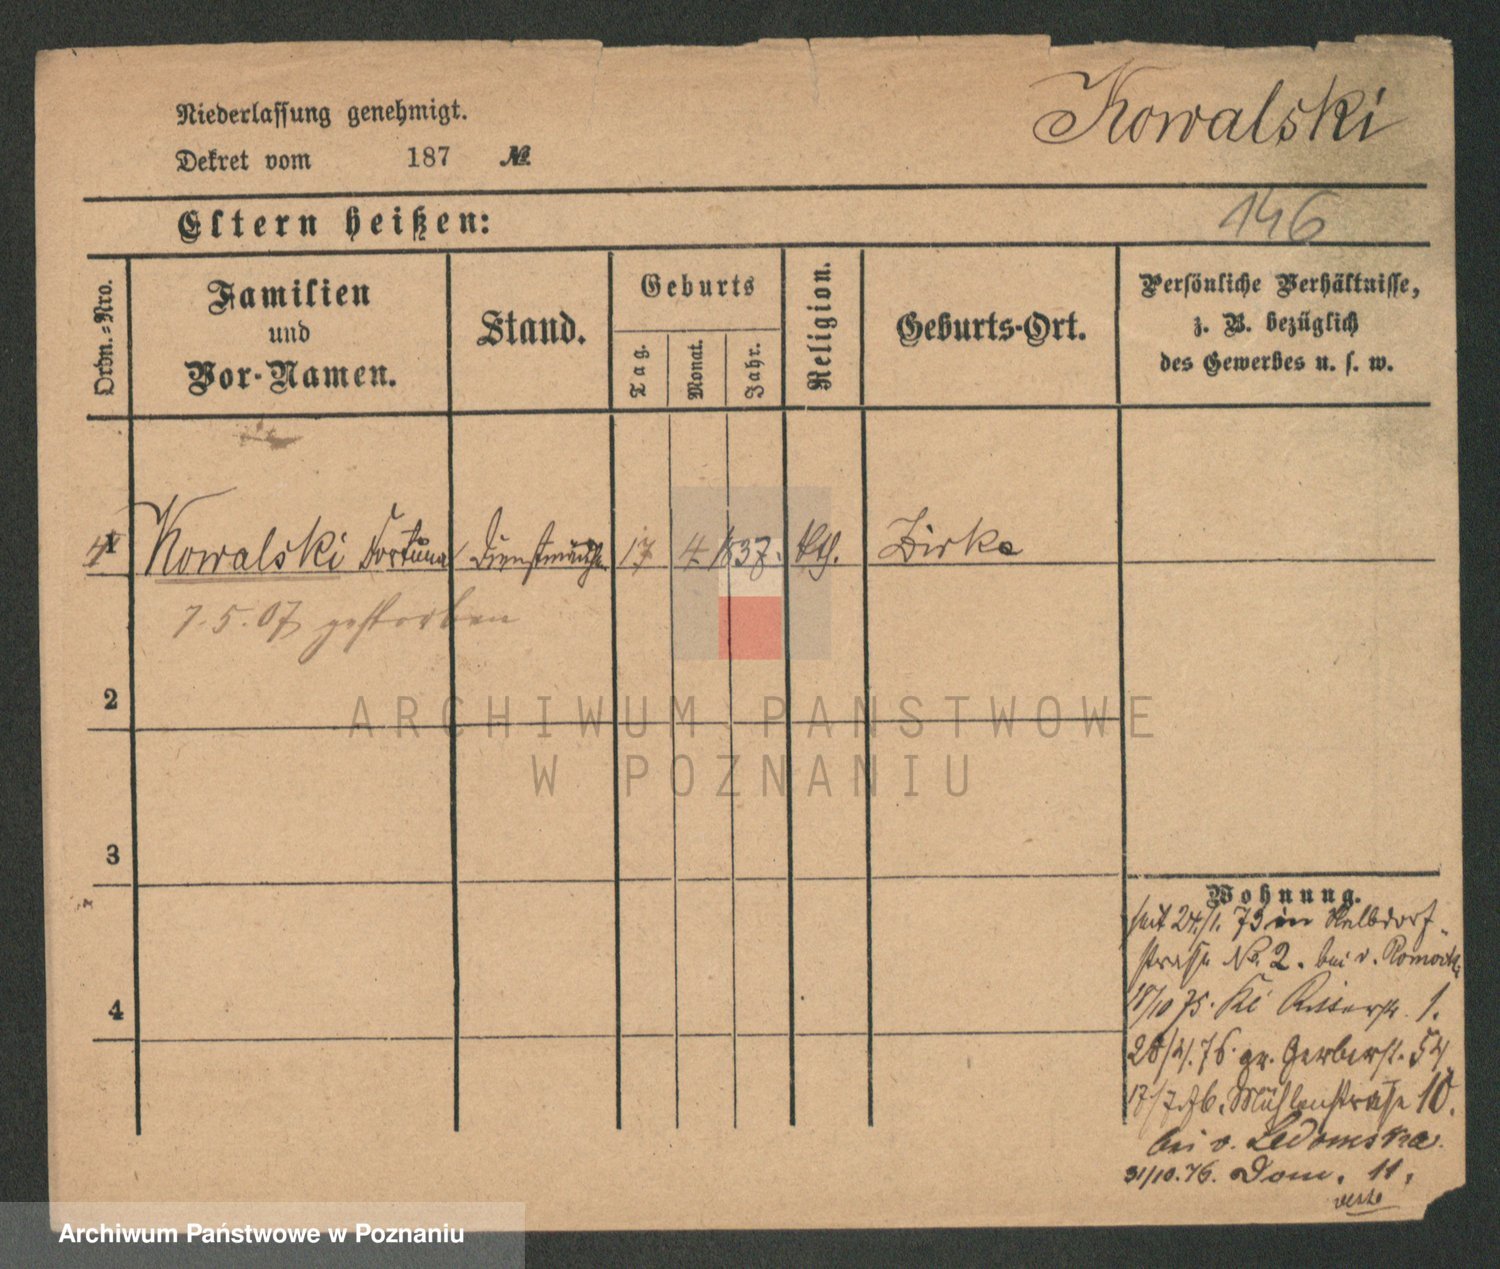 Niederlassung genehmigt.
Kowalski
Dekret vom 187 №
146
Eltern heißen:
Ordn.=Nro.
Familien
und
Vor-Namen.
Stand.
Geburts
Tag.
Monat.
Jahr.
Religion.
Geburts-Ort.
Persönliche Verhältnisse,
z. B. bezüglich
des Gewerbes u. s. w.
1 Kowalski Fortuna 17 4 1837. kth. Zirke
7.5.07 gestorben
2
3
4
Wohnung.
seit 24/1. 73 in Halbdorf-
strasse No. 2. bei v.
18/10 75. Kl Ritterstr. 1.
28/4/. 76. gr. Gerberst. 54
17/7.76. Mühlenstrasse 10.
bei v. Ledomska.
31/10.76. Dom. 11.
ARCHIWUM PAŃSTWOWE
W POZNANIU
Archiwum Państwowe w Poznaniu